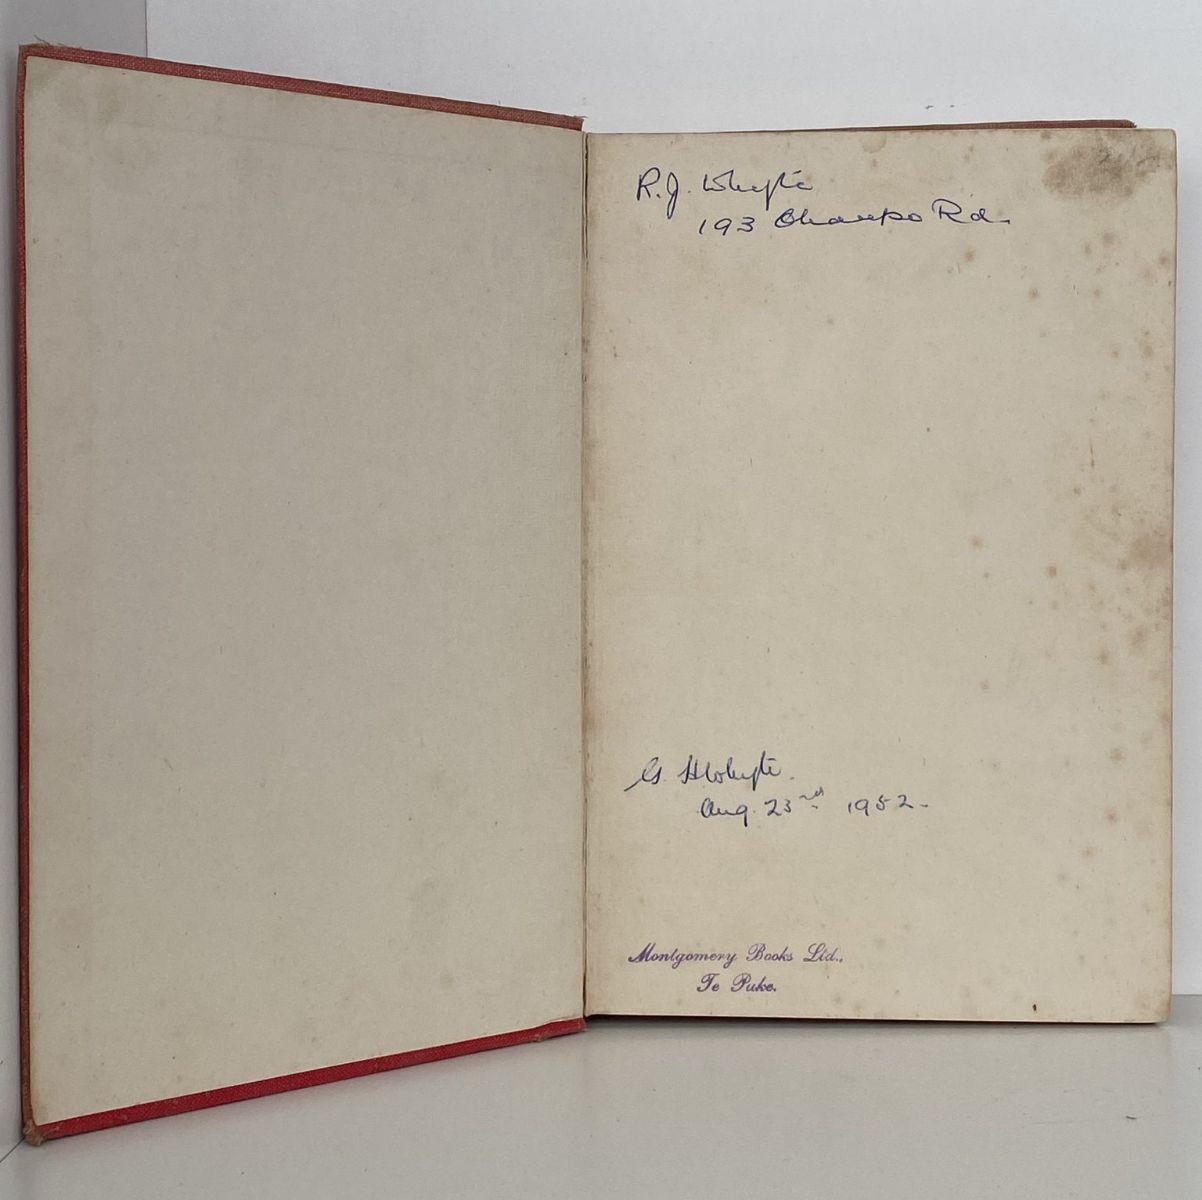 R.J. Whyte
193 Ohaupo Rd.
G. H Whyte.
Aug. 23rd. 1952.
Montgomery Books Ltd.,
Te Puke.